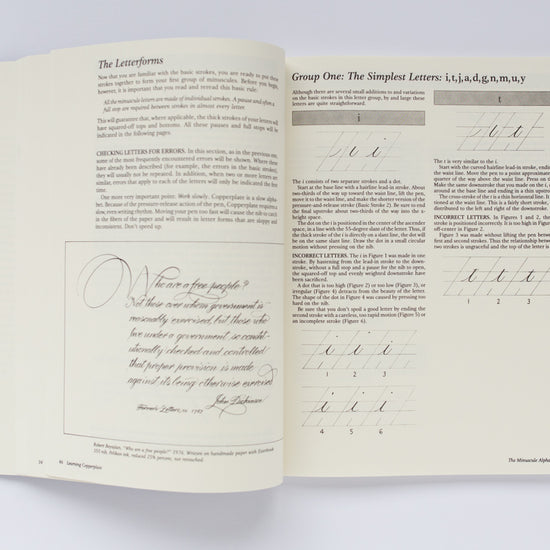 The Letterforms
Now that you are familiar with the basic strokes, you are ready to put these
strokes together to form your first group of minuscules. Before you begin,
however, it is important that you read and reread this basic rule:
All the minuscule letters are made of individual strokes. A pause and often a
full stop are required between strokes in almost every letter.
This will guarantee that, where applicable, the thick strokes of your letters
will have squared-off tops and bottoms. All these pauses and full stops will be
indicated in the following pages.
CHECKING LETTERS FOR ERRORS. In this section, as in the previous one,
some of the most frequently encountered errors will be shown. Where these
have already been described (for example, the errors in the basic strokes),
they will usually not be repeated. In addition, when two or more letters are
similar, errors that apply to each of the letters will only be indicated the first
time.
One more very important point: Work slowly. Copperplate is a slow alpha-
bet. Because of the action of the pressure-release action of the pen, Copperplate requires a
slow, even writing rhythm. Moving your pen too fast will cause the nib to catch
in the fibers of the paper and will result in letter forms that are sloppy and
inconsistent. Don't speed up.
Who are a free people?
Not those over whom government is
reasonably exercised, but those who
live under a government so constit-
utionally checked and controlled
that proper provision is made
against its being otherwise exercised
John Dickinson
Farmer's Letters, 1767
Robert Boyajian, "Who are a free people?" 1976. Written on handmade paper with
nib, Pelikan ink, reduced 25% percent, not retouched.
Learning Copperplate
Group One: The Simplest Letters: i,t,j,a,d,g,n,m,u,y
Although there are several small additions to and variations
on the basic strokes in this letter group, by and large these
letters are quite straightforward.
i
i i
The i consists of two separate strokes and a dot.
Start at the base line with a hairline lead-in stroke. About
two-thirds of the way up to the waist line, lift the pen,
move it to the waist line, and make the shorter version of the
pressure-and-release stroke (Basic Stroke 2). Be sure to end
the final upstroke about two-thirds of the way into the x-
height space.
The dot on the i is positioned in the center of the ascender
space, in a line with the 55-degree slant of the letter. Thus, if
the thick stroke of the i is directly on a slant line, the dot will
be on the same slant line. Draw the dot in a small circular
motion without pressing on the nib.
INCORRECT LETTERS. The i in Figure 1 was made in one
stroke. By hastening from the lead-in stroke to the down-
stroke, without a full stop and a pause for the nib to open,
the squared-off top and evenly weighted downstroke have
been sacrificed.
A dot that is too high (Figure 2) or too low (Figure 3), or
irregular (Figure 4) detracts from the beauty of the letter.
The shape of the dot in Figure 4 was caused by pressing too
hard on the nib.
Be sure that you don't spoil a good letter by ending the
second stroke with a careless, too rapid motion (Figure 5) or
an incomplete stroke (Figure 6).
i i i
1 2 3
i i i
4 5 6
t
t t
The t is very similar to the i.
Start with the curved hairline lead-in stroke, ending
the waist line. Move the pen to a point approximately
quarter of the way above the waist line. Press on
Make the same downstroke that you made on the i,
around at the base line and ending in a thin upstroke
The cross-stroke of the t is a thin horizontal line. It
tioned at the waist line. This is a fairly short stroke,
distributed to the left and right of the downstroke.
INCORRECT LETTERS. In Figures 1 and 2, the
stroke is positioned incorrectly. It is too high in Figure
off-center in Figure 2.
Figure 3 was made without lifting the pen between
first and second strokes. Thus the relationship between
two strokes is ungraceful and the top of the letter is
t t t
1 2 3
The Minuscule Alpha